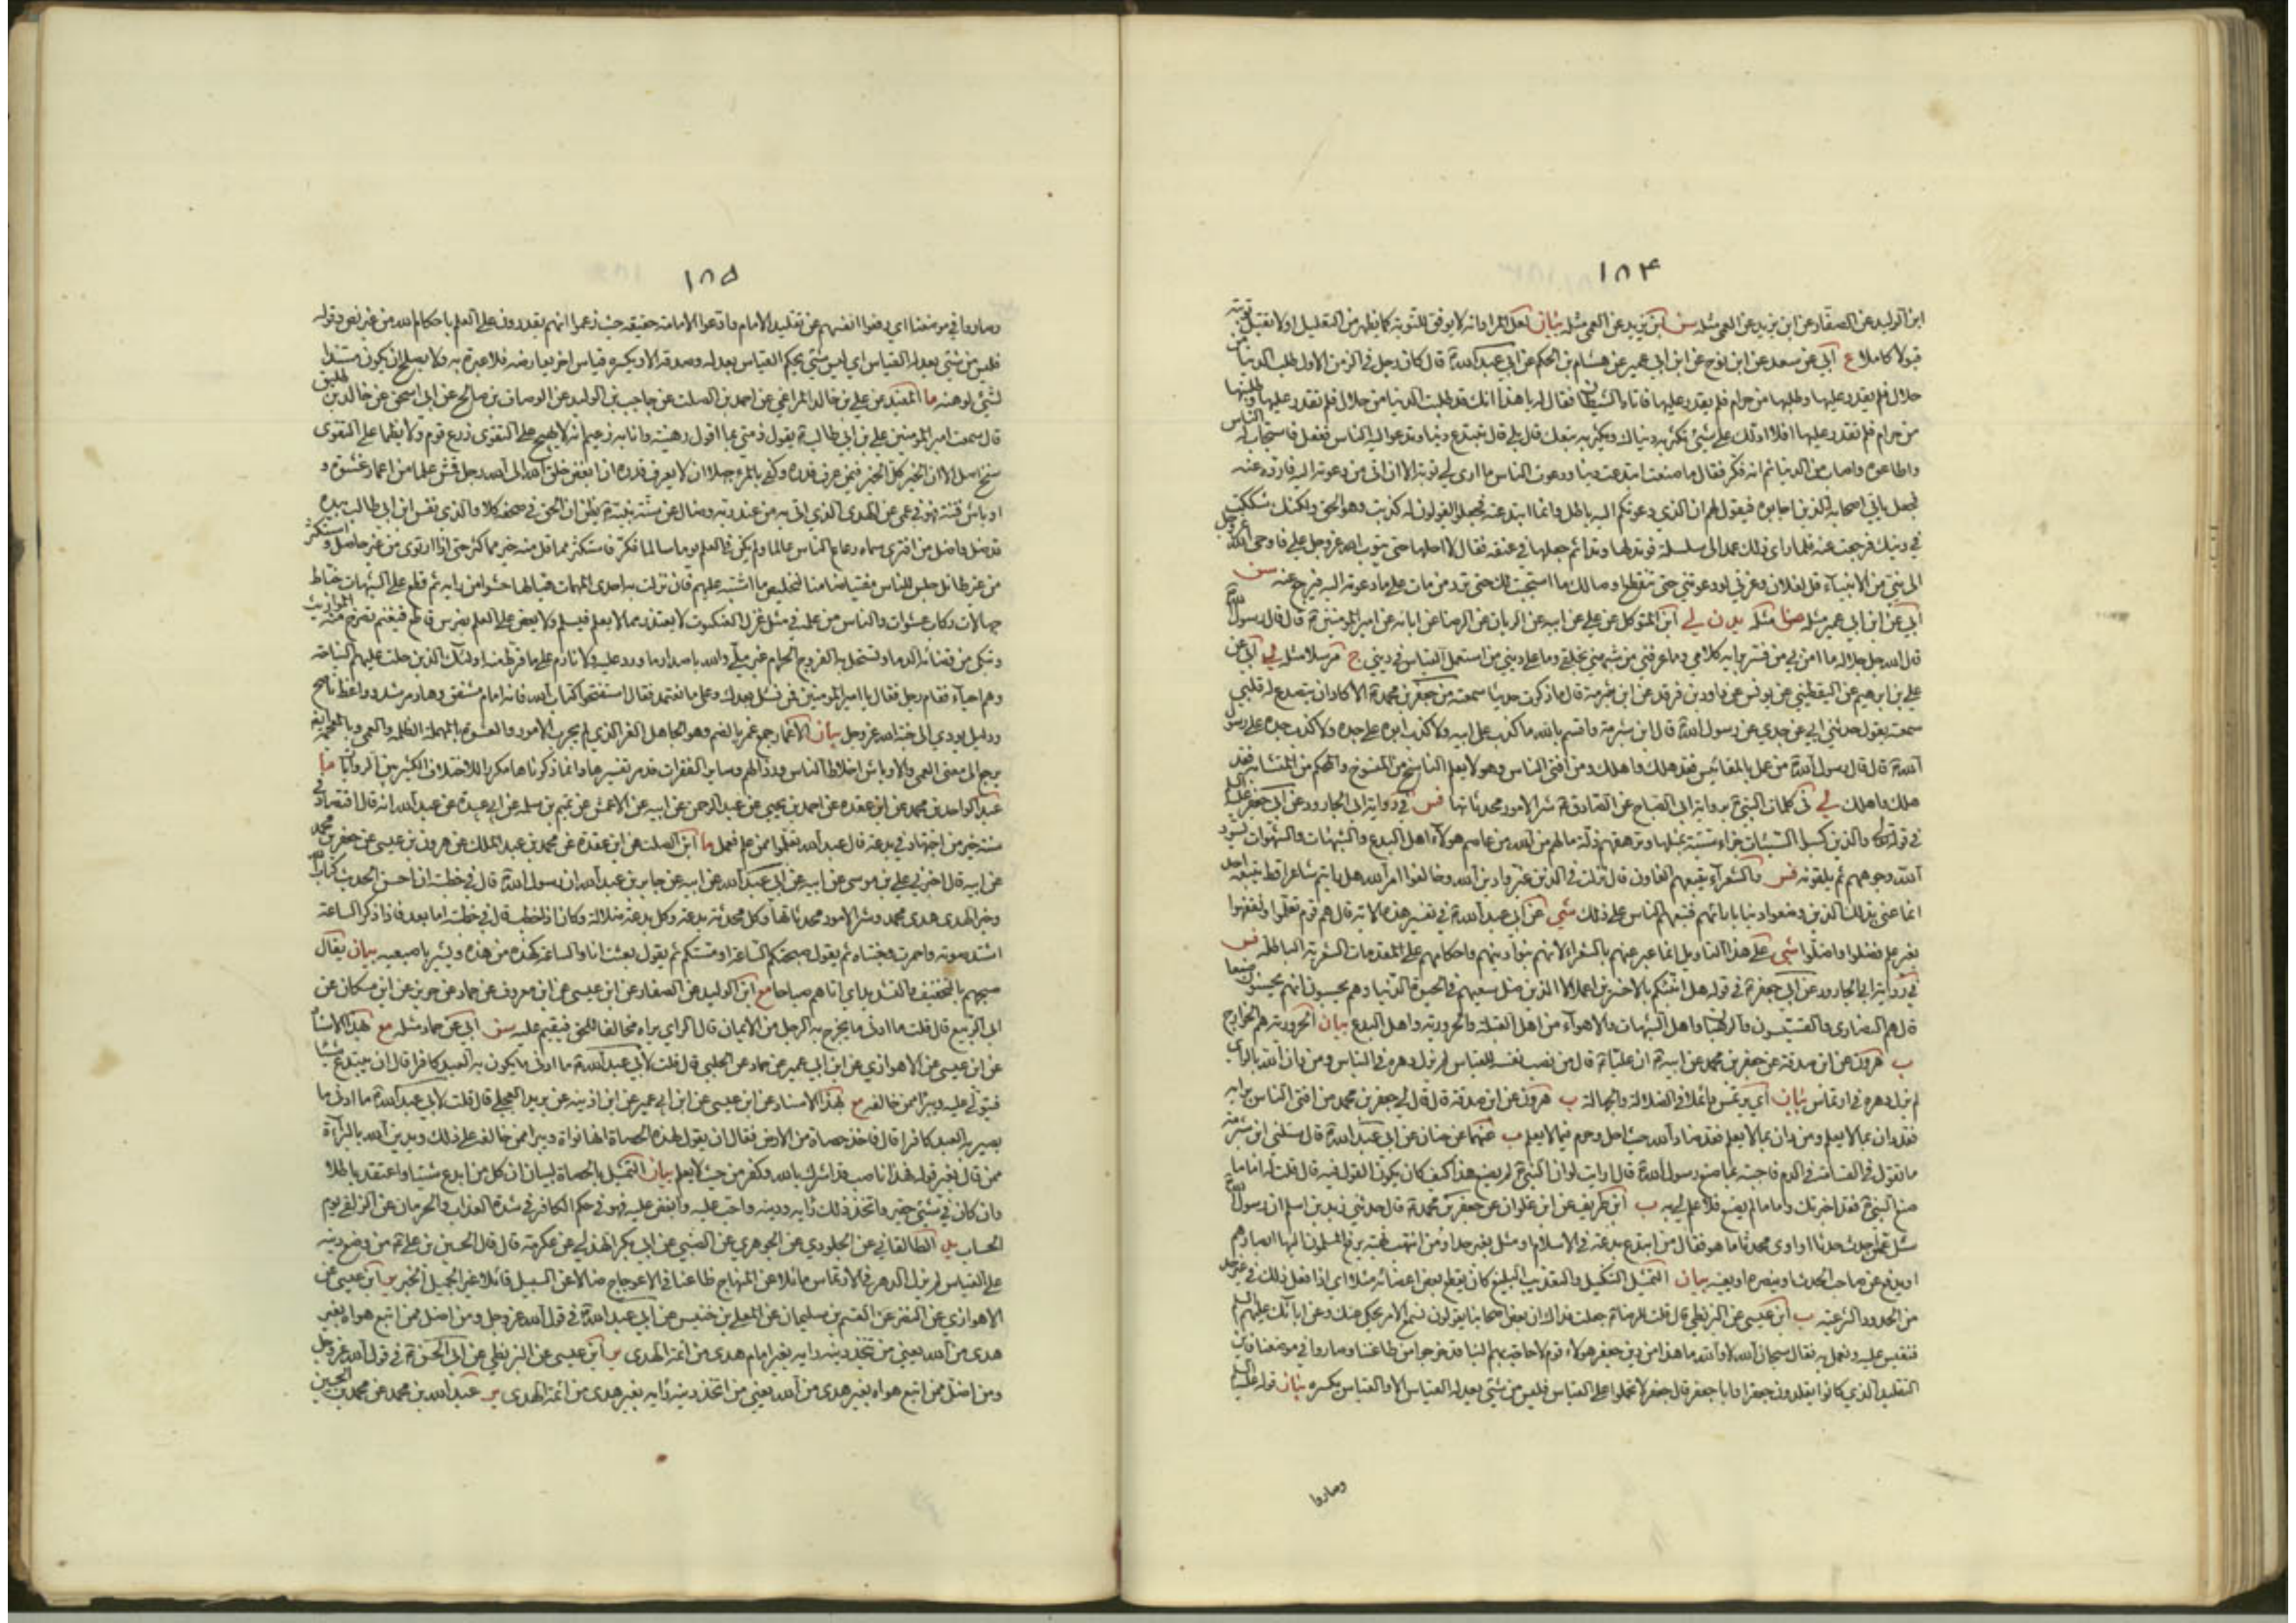 ١٨٤
ابن الوليد عن الصفار عن ابن يزيد عن العمي مثله سن ابن يزيد عن العمي مثله بيان لعل المراد انه لا يوفق للتوبة كما يظهر من التعليل او لا تقبل توبته
قبولا كاملا ع ابي عن سعد عن ابن نوح عن ابن ابي عمير عن هشام بن الحكم عن ابي عبد الله ع قال كان رجل في الزمن الاول طلب الدنيا من
حلال فلم يقدر عليها وطلبها من حرام فلم يقدر عليها فاتاه الشيطان فقال له يا هذا انك قد طلبت الدنيا من حلال فلم تقدر عليها وطلبتها
من حرام فلم تقدر عليها افلا ادلك على شيء تكثر به دنياك ويكثر به تبعك قال بلى قال تبتدع دينا وتدعو اليه الناس ففعل فاستجاب له الناس
واطاعوه واصاب من الدنيا ثم انه فكر فقال ما صنعت ابتدعت دينا ودعوت الناس ما ارى لي توبة الا ان اتي من دعوته اليه فارده عنه
فجعل ياتي اصحابه الذين اجابوه فيقول لهم ان الذي دعوتكم اليه باطل وانما ابتدعته فجعلوا يقولون له كذبت وهو الحق ولكنك شككت
في دينك فرجعت عنه فلما راى ذلك عمد الى سلسلة فوتد لها وتدا ثم جعلها في عنقه فقال لا احلها حتى يتوب الله عز وجل علي فاوحى الله عز وجل
الى نبي من الانبياء قل لفلان وعزتي لو دعوتني حتى تنقطع اوصالك ما استجبت لك حتى ترد من مات على ما دعوته اليه فيرجع عنه سن
ابي عن ابن ابي عمير مثله ضا مثله يد ن لي ابن المتوكل عن علي عن ابيه عن الريان عن الرضا عن ابائه عن امير المؤمنين ع قال قال رسول الله
قال الله جل جلاله ما امن بي من فسر برايه كلامي وما عرفني من شبهني بخلقي وما على ديني من استعمل القياس في ديني ج مرسلا مثله لي ابي عن
علي بن ابرهيم عن اليقطيني عن يونس عن داود بن فرقد عن ابن شبرمة قال ما ذكرت حديثا سمعته من جعفر بن محمد ع الا كاد ان يتصدع له قلبي
سمعته يقول حدثني ابي عن جدي عن رسول الله ص قال ابن شبرمة واقسم بالله ما كذب على ابيه ولا كذب ابوه على جده ولا كذب جده على رسول
الله ص قال قال رسول الله ص من عمل بالمقائيس فقد هلك واهلك ومن افتى الناس وهو لا يعلم الناسخ من المنسوخ والمحكم من المتشابه فقد
هلك واهلك لي في كلمات النبي ص برواية ابي الصباح عن الصادق ع شر الامور محدثاتها فس في رواية ابي الجارود عن ابي جعفر عليه السلام
في قوله تعالى والذين كسبوا السيئات جزاء سيئة بمثلها وترهقهم ذلة ما لهم من الله من عاصم هؤلاء اهل البدع والشبهات والشهوات يسود
الله وجوههم ثم يلقونه فس والشعراء يتبعهم الغاون قال نزلت في الذين غيروا دين الله وخالفوا امر الله هل رايتم شاعرا قط يتبعه احد
انما عنى بذلك الذين وضعوا دينا بارائهم فتبعهم الناس على ذلك شي عن ابي عبد الله ع في تفسير هذه الاية قال هم قوم تعلموا وتفقهوا
بغير علم فضلوا واضلوا شي على هذا التاويل انما عبر عنهم بالشعراء لانهم بنوا دينهم واحكامهم على المقدمات الشعرية الباطلة فس
في رواية ابي الجارود عن ابي جعفر ع في قوله هل انبئكم بالاخسرين اعمالا الذين ضل سعيهم في الحيوة الدنيا وهم يحسبون انهم يحسنون صنعا
قال هم النصارى والقسيسون والرهبان واهل الشبهات والاهواء من اهل القبلة والحرورية واهل البدع بيان الحرورية هم الخوارج
ب هرون عن ابن صدقة عن جعفر بن محمد عن ابيه ع ان عليا ع قال من نصب نفسه للقياس لم يزل دهره في التباس ومن دان الله بالراي
لم يزل دهره في ارتماس بيان اي يرتمس دائما في الضلالة والجهالة ب هرون عن ابن صدقة قال قال لي جعفر بن محمد من افتى الناس برايه
فقد دان بما لا يعلم ومن دان بما لا يعلم فقد ضاد الله حيث احل وحرم فيما لا يعلم ب عنهما عن حنان عن ابي عبد الله ع قال سئلني ابن شبرمة
ما تقول في القسامة في الدم فاجبته بما صنع رسول الله ص قال ارايت لو ان النبي ص لم يصنع هذا كيف كان يكون القول فيه قال قلت له اما ما
صنع النبي ص فقد اخبرتك واما ما لم يصنع فلا علم لي به ب ابن طريف عن ابن علوان عن جعفر بن محمد ع قال حدثني زيد بن اسلم ان رسول الله
سئل عمن احدث حدثا او اوى محدثا ما هو فقال من ابتدع بدعة في الاسلام او مثل بغير حد او من انتهب نهبة يرفع المسلمون اليها ابصارهم
او يدفع عن صاحب الحدث او ينصره او يعينه بيان التمثيل التنكيل والتعذيب البليغ كان يقطع بعض اعضائه مثلا اي اذا فعل ذلك في غير حد
من الحدود الشرعية ب ابن عيسى عن البزنطي قال قلت للرضا ع جعلت فداك ان بعض اصحابنا يقولون نسمع الامر يحكى عنك وعن ابائك عليهم السلام
فنقيس عليه ونعمل به فقال سبحان الله لا والله ما هذا من دين جعفر هؤلاء قوم لا حاجة بهم الينا قد خرجوا من طاعتنا وصاروا في موضعنا فاين
التقليد الذي كانوا يقلدون جعفرا وابا جعفر قال جعفر لا تحملوا على القياس فليس من شيء يعدله القياس الا والقياس يكسره بيان قوله عليه السلام
وصاروا
١٨٥
وصاروا في موضعنا اي رفعوا انفسهم عن تقليد الامام وادعوا الامامة حقيقة حيث زعموا انهم يقدرون على العلم باحكام الله من غير نص وقوله
فليس من شيء يعدله القياس اي ليس شيء يحكم القياس بعدله وصدقه الا ويكسره قياس اخر يعارضه فلا عبرة به ولا يصلح ان يكون مستندا
لشيء لوهنه ما المفيد عن علي بن خالد المراغي عن احمد بن الصلت عن حاجب بن الوليد عن الوصاف بن صالح عن ابي اسحق عن خالد بن طليق
قال سمعت امير المؤمنين علي بن ابي طالب ع يقول ذمتي بما اقول رهينة وانا به زعيم انه لا يهيج على التقوى زرع قوم ولا يظما على التقوى
سنخ اصل الا ان الخير كل الخير فيمن عرف قدره وكفى بالمرء جهلا ان لا يعرف قدره ان ابغض خلق الله الى الله رجل قمش علما من اغمار غشوة و
اوباش فتنة فهو في عمى عن الهدى الذي اتى به من عند ربه وضال عن سنة نبيه ص يظن ان الحق في صحفه كلا والذي نفس ابن ابي طالب بيده
قد ضل واضل من افترى سماه رعاع الناس عالما ولم يكن في العلم يوما سالما فكر فاستكثر مما قل منه خير مما كثر حتى اذا ارتوى من غير حاصل واستكثر
من غير طائل جلس للناس مفتيا ضامنا لتخليص ما اشتبه عليهم فان نزلت به احدى المبهمات هيا لها حشوا من رايه ثم قطع على الشبهات خباط
جهالات ركاب عشوات والناس من علمه في مثل غزل العنكبوت لا يعتذر مما لا يعلم فيسلم ولا يعض على العلم بضرس قاطع فيغنم تصرخ منه المواريث
وتبكي من قضائه الدماء وتستحل به الفروج الحرام غير ملي والله باصدار ما ورد عليه ولا نادم على ما فرط منه اولئك الذين حلت عليهم النياحة
وهم احياء فقام رجل فقال يا امير المؤمنين فمن نسئل بعدك وعلى ما نعتمد فقال استفتحوا كتاب الله فانه امام مشفق وهاد مرشد وواعظ ناصح
ودليل يودي الى جنة الله عز وجل بيان الاغمار جمع غمر بالضم وهو الجاهل الغر الذي لم يجرب الامور والعشوة بالمهملة الظلمة والعمى وبالمعجمة ايضا
يرجع الى معنى العمى والاوباش اخلاط الناس ورذالهم وساير الفقرات قد مر تفسيرها وانما ذكرناها مكررا للاختلاف الكثير بين الروايات ما
عبد الواحد بن محمد عن ابن عقدة عن احمد بن يحيى عن عبد الرحمن عن ابيه عن الاعمش عن تميم بن سلمة عن ابي عبيدة عن عبد الله انه قال اقتصاد في
سنة خير من اجتهاد في بدعة قال عبد الله تعلموا ممن علم فعمل ما ابن الصلت عن ابن عقدة عن محمد بن عبد الملك عن هرون بن عيسى عن جعفر بن محمد
عن ابيه قال اخبرني علي بن موسى عن ابيه عن ابي عبد الله عن ابيه عن جابر بن عبد الله ان رسول الله ص قال في خطبته ان احسن الحديث كتاب الله
وخير الهدى هدى محمد وشر الامور محدثاتها وكل محدثة بدعة وكل بدعة ضلالة وكان اذا خطب قال في خطبته اما بعد فاذا ذكر الساعة
اشتد صوته واحمرت وجنتاه ثم يقول صبحتكم الساعة او مستكم ثم يقول بعثت انا والساعة كهذه من هذه ويشير باصبعيه بيان يقال
صبحهم بالتخفيف والتشديد اي اتاهم صباحا مع ابن الوليد عن الصفار عن ابن عيسى عن ابن معروف عن حماد عن حريز عن ابن مسكان عن
ابي الربيع قال قلت ما ادنى ما يخرج به الرجل من الايمان قال الراي يراه مخالفا للحق فيقيم عليه سن ابي عن حماد مثله مع بهذا الاسناد
عن ابن عيسى عن الاهوازي عن ابن ابي عمير عن حماد عن الحلبي قال قلت لابي عبد الله ع ما ادنى ما يكون به العبد كافرا قال ان يبتدع شيئا
فيتولى عليه ويبرا ممن خالفه مع بهذا الاسناد عن ابن عيسى عن ابن ابي عمير عن ابن اذينة عن بريد العجلي قال قلت لابي عبد الله ع ما ادنى ما
يصير به العبد كافرا قال فاخذ حصاة من الارض فقال ان يقول لهذه الحصاة انها نواة ويبرا ممن خالفه على ذلك ويدين الله بالبراءة
ممن قال بغير قوله فهذا ناصب قد اشرك بالله وكفر من حيث لا يعلم بيان التمثيل بالحصاة لبيان ان كل من ابدع شيئا واعتقد باطلا
وان كان في شيء حقير واتخذ ذلك رايه ودينه واحب عليه وابغض عليه فهو في حكم الكافر في شدة العذاب والحرمان عن الزلفى يوم
الحساب يد الطالقاني عن الجلودي عن الجوهري عن الضبي عن ابي بكر الهذلي عن عكرمة قال قال الحسين بن علي ع من وضع دينه
على القياس لم يزل الدهر في الارتماس مائلا عن المنهاج ظاعنا في الاعوجاج ضالا عن السبيل قائلا غير الجميل الخبر ير ابن عيسى عن
الاهوازي عن النضر عن القسم بن سليمان عن المعلى بن خنيس عن ابي عبد الله ع في قول الله عز وجل ومن اضل ممن اتبع هواه بغير
هدى من الله يعني من يتخذ دينه رايه بغير امام هدى من ائمة الهدى ير ابن عيسى عن البزنطي عن ابي الحسن ع في قول الله عز وجل
ومن اضل ممن اتبع هواه بغير هدى من الله يعني من اتخذ دينه رايه بغير هدى من ائمة الهدى ير عبد الله بن محمد عن محمد بن الحسين